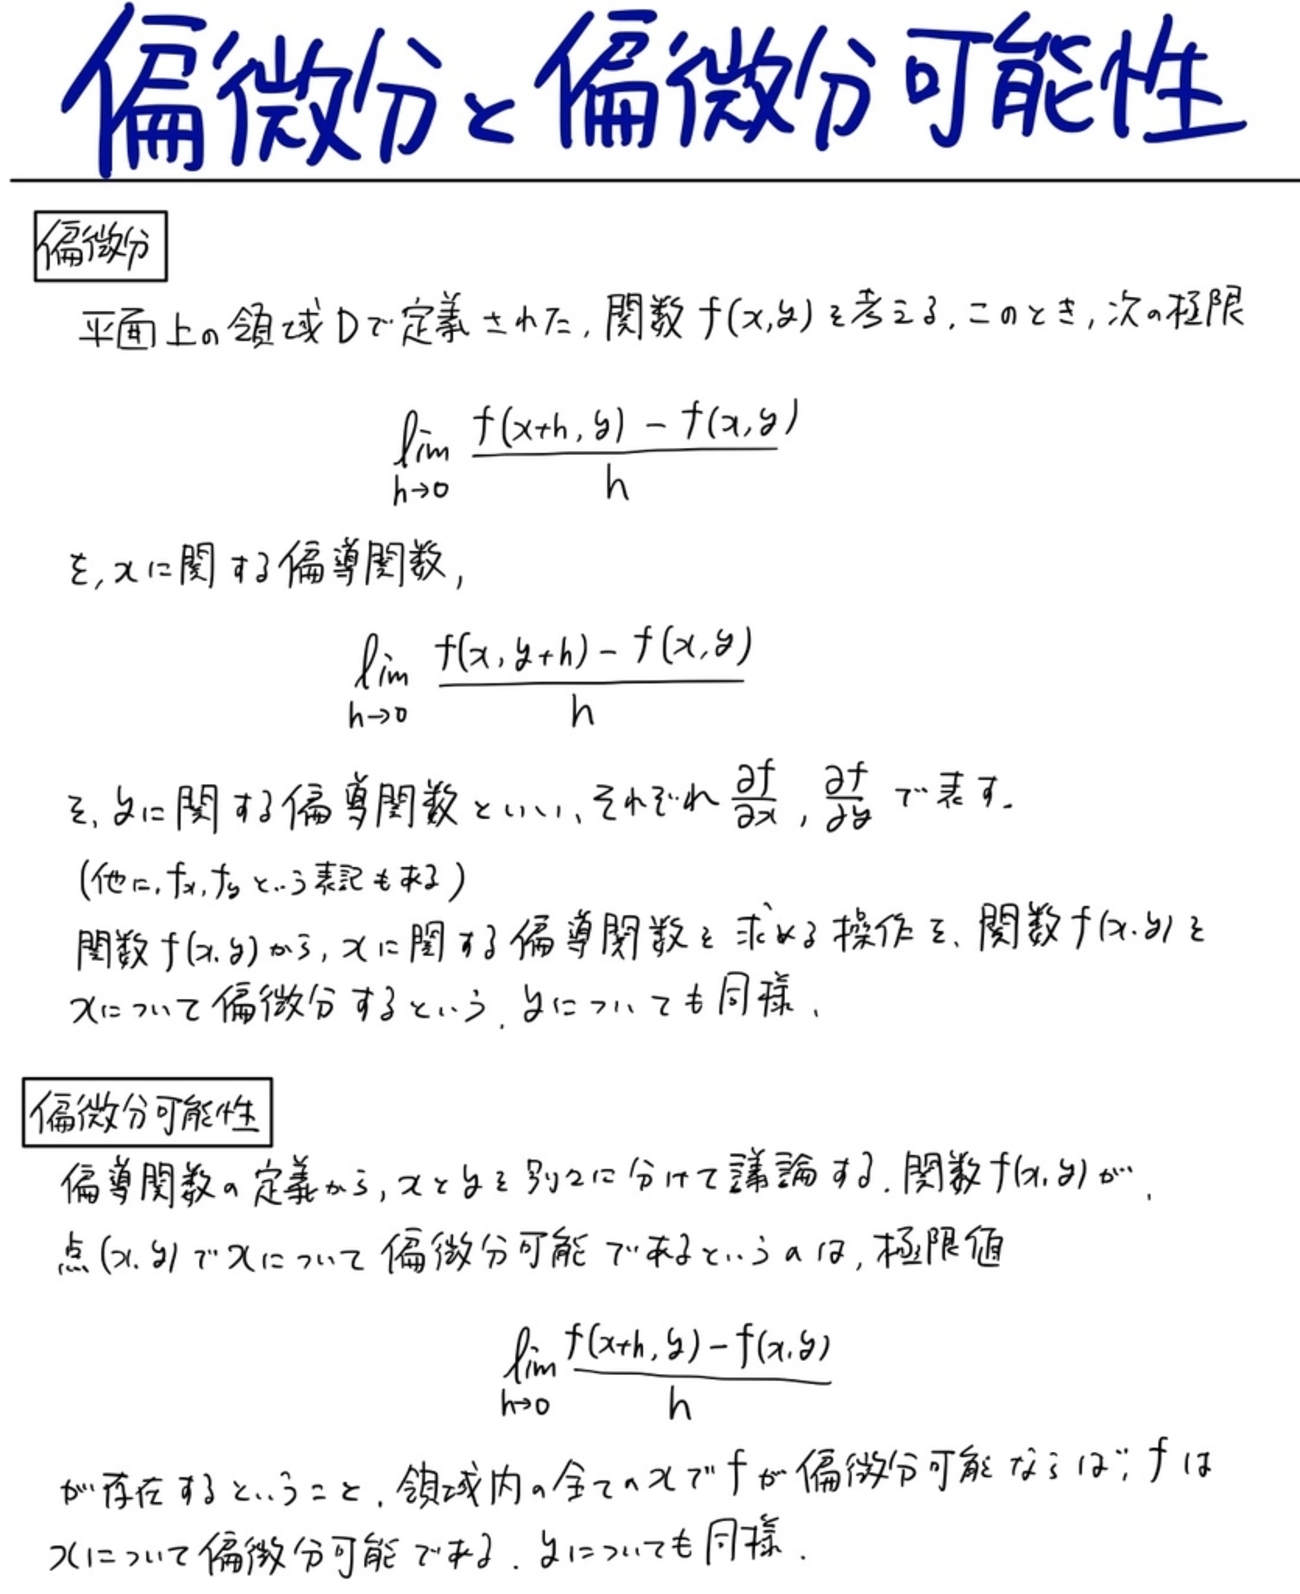 偏微分と偏微分可能性
偏微分
平面上の領域Dで定義された,関数f(x,y)を考える.このとき,次の極限
lim_{h→0} \frac{f(x+h,y)-f(x,y)}{h}
を,xに関する偏導関数,
lim_{h→0} \frac{f(x,y+h)-f(x,y)}{h}
を,yに関する偏導関数といい、それぞれ \frac{∂f}{∂x}, \frac{∂f}{∂y} で表す.
(他に,f_x,f_yという表記もある)
関数f(x,y)から,xに関する偏導関数を求める操作を、関数f(x,y)を
xについて偏微分するという.yについても同様.
偏微分可能性
偏導関数の定義から,xとyを別々に分けて議論する.関数f(x,y)が,
点(x,y)でxについて偏微分可能であるというのは,極限値
lim_{h→0} \frac{f(x+h,y)-f(x,y)}{h}
が存在するということ.領域内の全てのxでfが偏微分可能ならば,fは
xについて偏微分可能である.yについても同様.